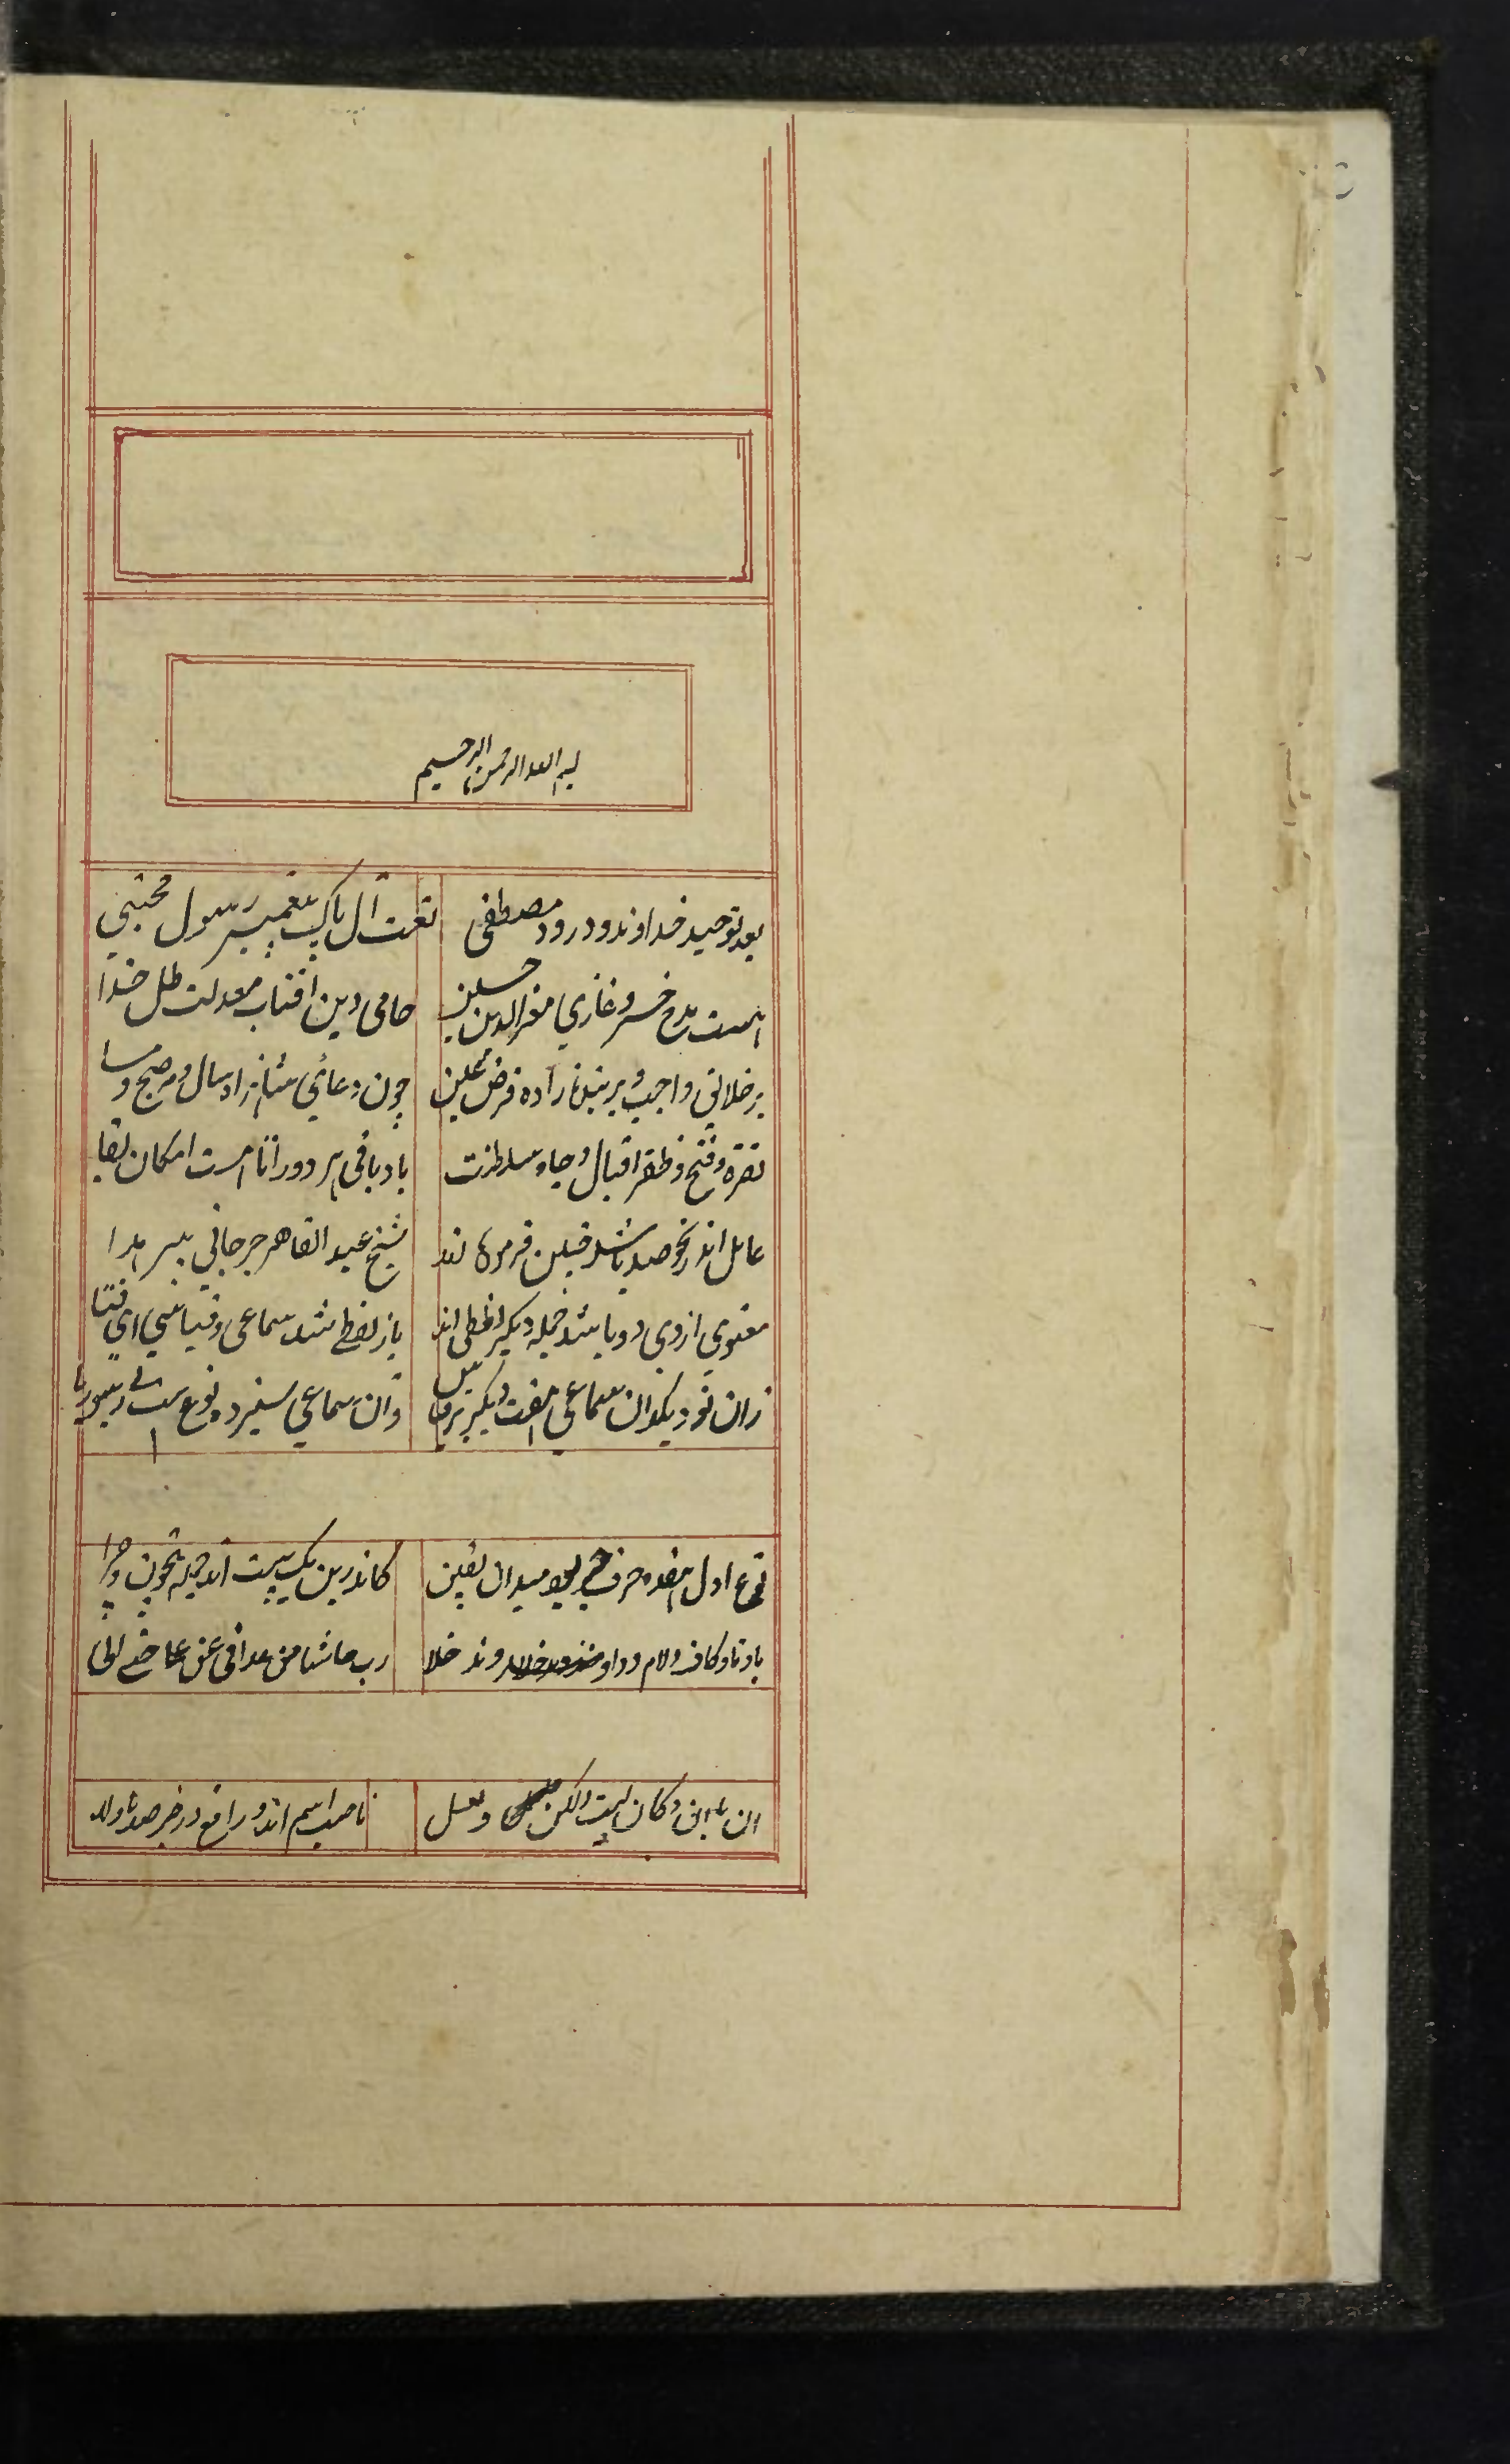 بسم الله الرحمن الرحیم
بعد توحید خداوند و درود مصطفی نعت آل پاک پیغمبر رسول مجتبی
هست مدح خسرو غازی معز الدین حسین حامی دین افتاب معدلت ظل خدا
بر خلائق واجب و بر بنده زاده فرض عین چون دعای شاهزاد سال و مه صبح و مسا
نصرة و فتح و ظفر اقبال و جاه و سلطنت باد باقی هر دو را تا هست امکان بقا
عامل اندر نحو صد باشد چنین فرموده اند شیخ عبد القاهر جرجانی پیر هدا
معنوی از وی دو باشد جمله دیگر لفظی اند باز لفظی شد سماعی و قیاسی ای فتا
زان نود یکدان سماعی هفت دیگر بر قیاس وان سماعی سیزده نوع ست بی ریب و ریا
نوع اول هفده حرف جر بود میدان یقین کاندرین یک بیت آمد جمله بیچون و چرا
با و تا و کاف و لام و واو منذ مذ خلا رب حاشا من عدا فی عن علی حتی الی
ان با ان کان لیت لکن لعل ناصب اسم اند و رافع در خبر ضد ما و لا